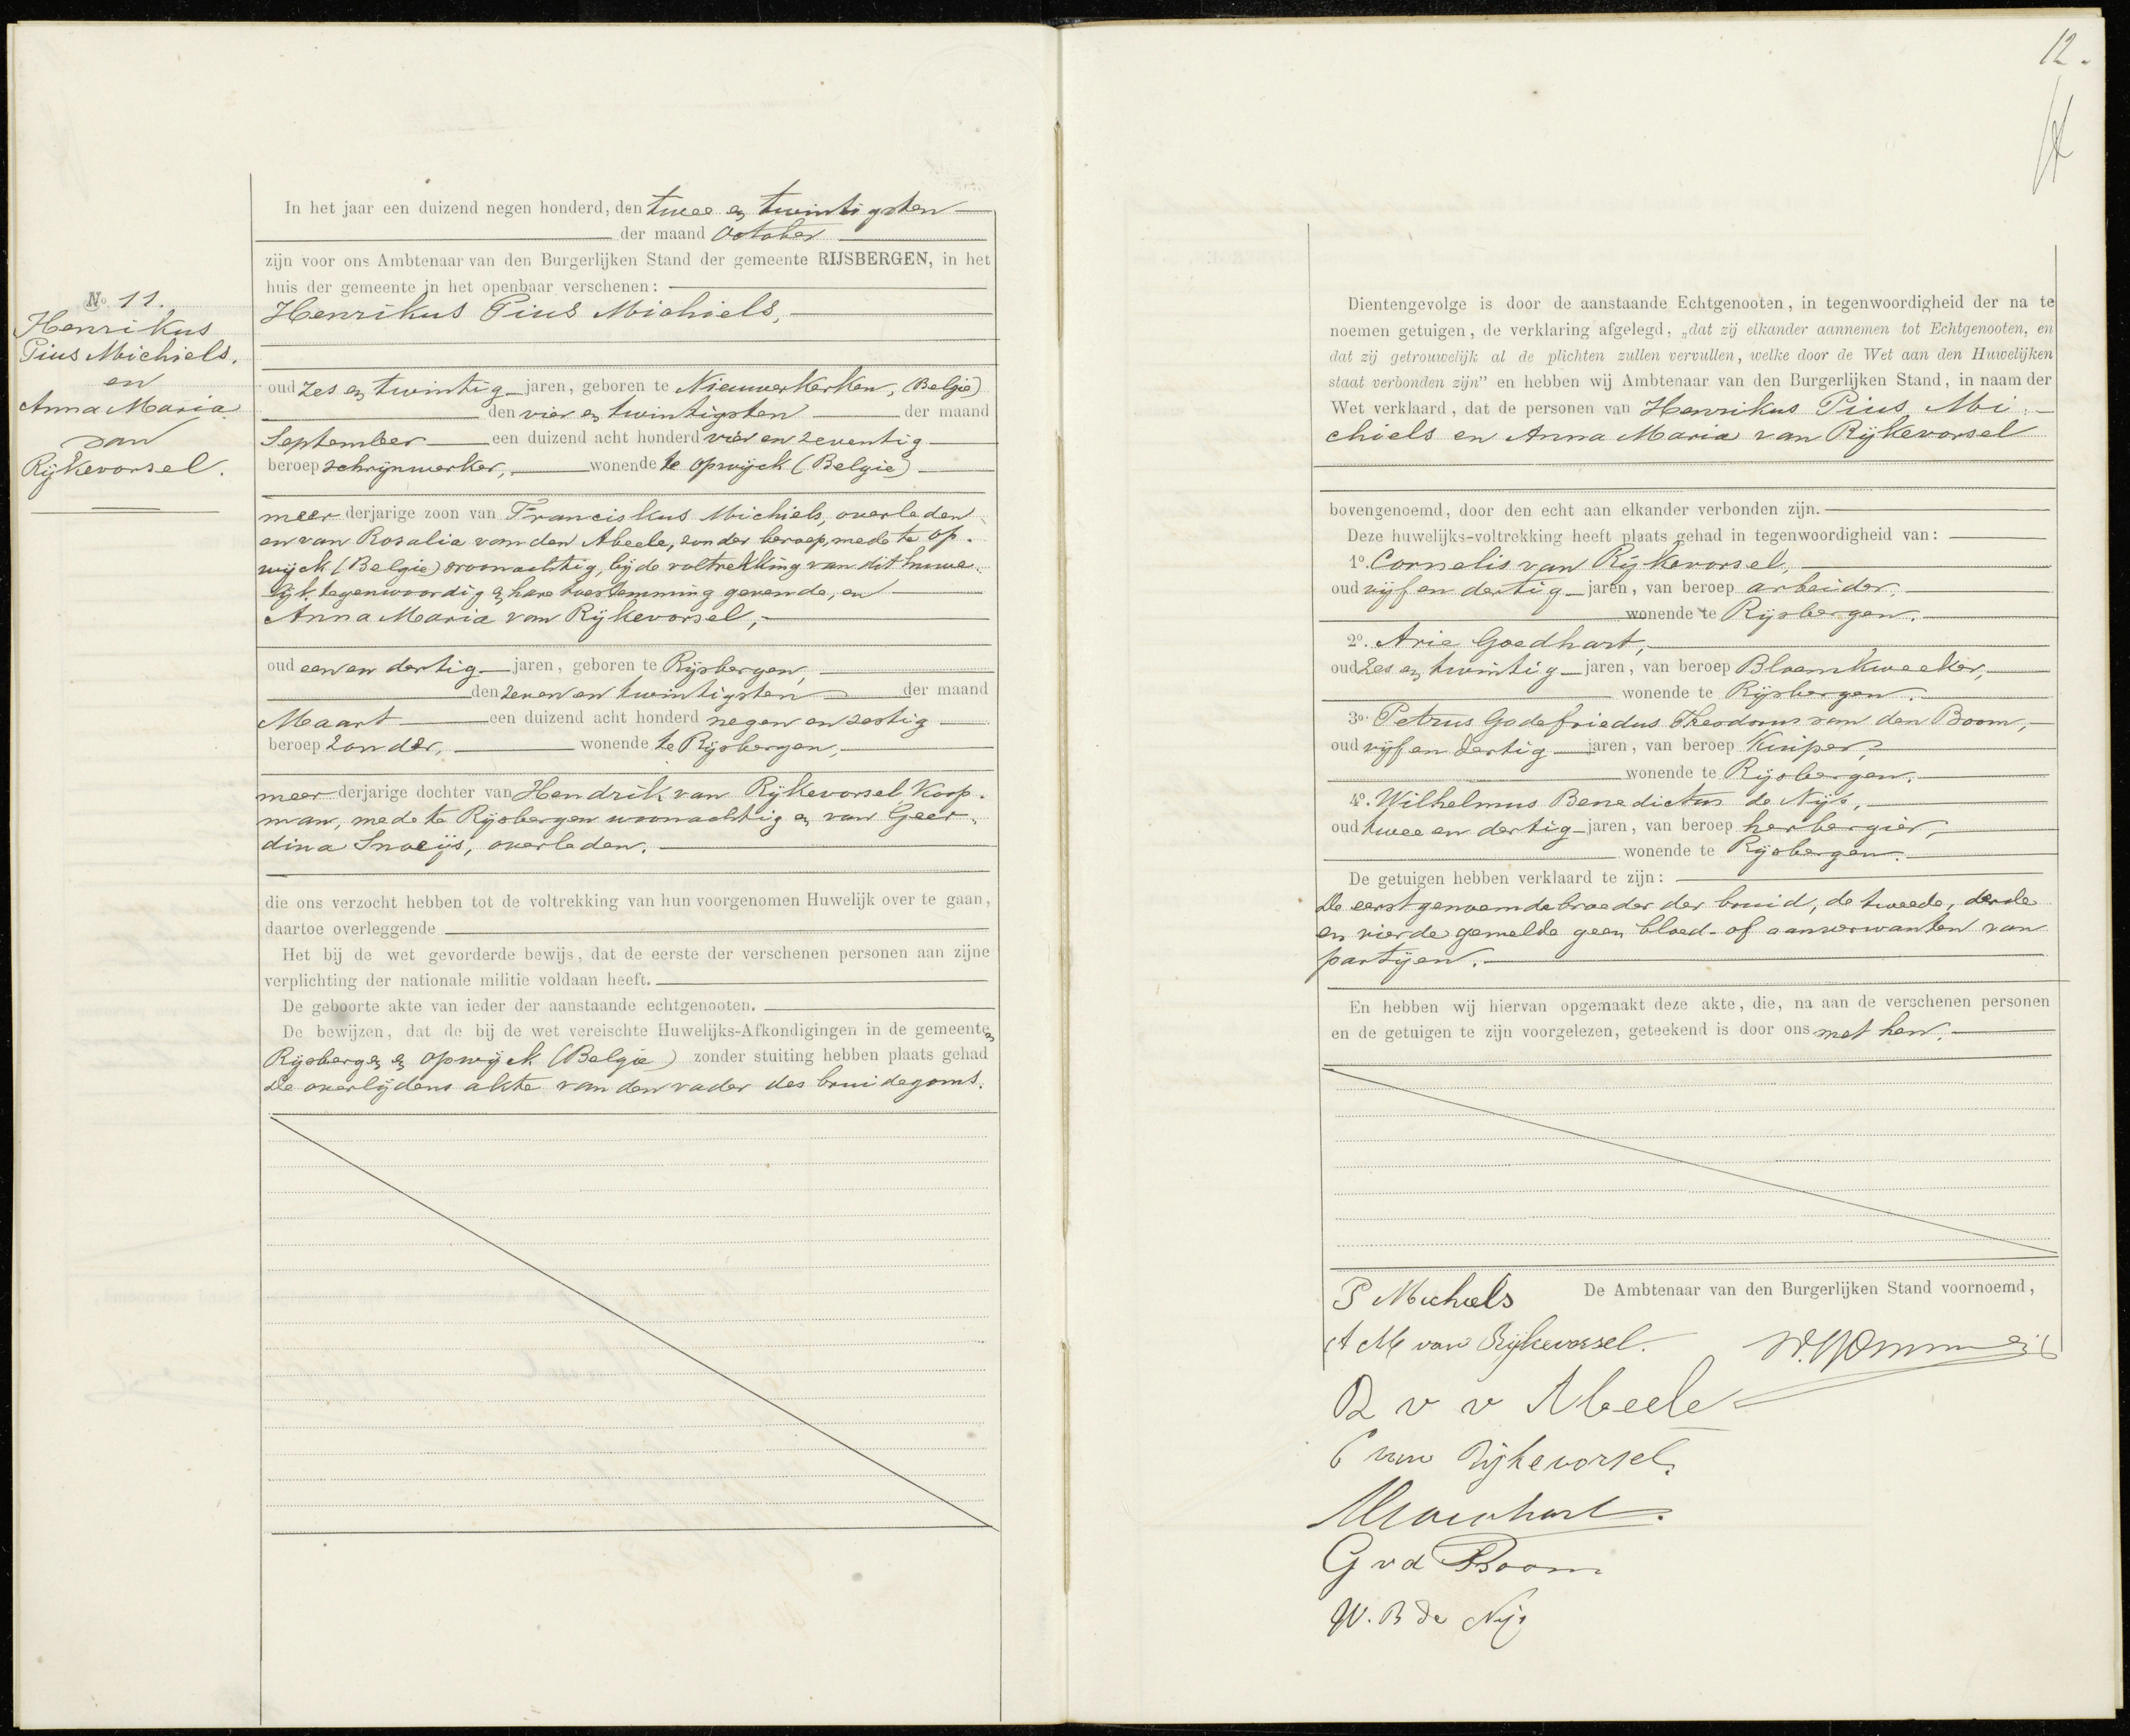 12.
No. 11.
Henrikus
Pius Michiels.
en
Anna Maria
van
Rijkevorsel.
In het jaar een duizend negen honderd, den twee en twintigsten
der maand October
zijn voor ons Ambtenaar van den Burgerlijken Stand der gemeente RIJSBERGEN, in het
huis der gemeente in het openbaar verschenen:
Henrikus Pius Michiels,
oud zes en twintig jaren, geboren te Nieuwerkerken, (Belgie)
den vier en twintigsten der maand
September een duizend acht honderd vier en zeventig
beroep schrijnwerker, wonende te Opwijck (Belgie)
meer derjarige zoon van Franciskus Michiels, overleden
en van Rosalia van den Abeele, zonder beroep, mede te Op-
wijck (Belgie) woonachtig, bij de voltrekking van dit huwe-
lijk tegenwoordig en hare toestemming gevende, en
Anna Maria van Rijkevorsel,
oud een en dertig jaren, geboren te Rijsbergen,
den zeven en twintigsten der maand
Maart een duizend acht honderd negen en zestig
beroep zonder, wonende te Rijsbergen,
meer derjarige dochter van Hendrik van Rijkevorsel Koop-
man, mede te Rijsbergen woonachtig en van Geer-
dina Snoeijs, overleden.
die ons verzocht hebben tot de voltrekking van hun voorgenomen Huwelijk over te gaan,
daartoe overleggende
Het bij de wet gevorderde bewijs, dat de eerste der verschenen personen aan zijne
verplichting der nationale militie voldaan heeft.
De geboorte akte van ieder der aanstaande echtgenooten.
De bewijzen, dat de bij de wet vereischte Huwelijks-Afkondigingen in de gemeenten
Rijsbergen en Opwijck (Belgie) zonder stuiting hebben plaats gehad
De overlijdens akte van den vader des bruidegoms.
Dientengevolge is door de aanstaande Echtgenooten, in tegenwoordigheid der na te
noemen getuigen, de verklaring afgelegd, „dat zij elkander aannemen tot Echtgenooten, en
dat zij getrouwelijk al de plichten zullen vervullen, welke door de Wet aan den Huwelijken
staat verbonden zijn” en hebben wij Ambtenaar van den Burgerlijken Stand, in naam der
Wet verklaard, dat de personen van Henrikus Pius Mi-
chiels en Anna Maria van Rijkevorsel
bovengenoemd, door den echt aan elkander verbonden zijn.
Deze huwelijks-voltrekking heeft plaats gehad in tegenwoordigheid van:
1o. Cornelis van Rijkevorsel,
oud vijf en dertig jaren, van beroep arbeider,
wonende te Rijsbergen.
2o. Arie Goedhart,
oud zes en twintig jaren, van beroep Bloemkweeker,
wonende te Rijsbergen.
3o. Petrus Godefriedus Theodorus van den Boom,
oud vijf en dertig jaren, van beroep Kuiper,
wonende te Rijsbergen.
4o. Wilhelmus Benedictus de Nijs,
oud twee en dertig jaren, van beroep herbergier,
wonende te Rijsbergen.
De getuigen hebben verklaard te zijn:
De eerstgenoemde broeder der bruid, de tweede, derde
en vierde gemelde geen bloed- of aanverwanten van
partijen.
En hebben wij hiervan opgemaakt deze akte, die, na aan de verschenen personen
en de getuigen te zijn voorgelezen, geteekend is door ons met hen.
P Michiels De Ambtenaar van den Burgerlijken Stand voornoemd,
A M van Rijkevorsel.
R v v Abeele
C van Rijkevorsel.
G vd Boom
W. B de Nijs